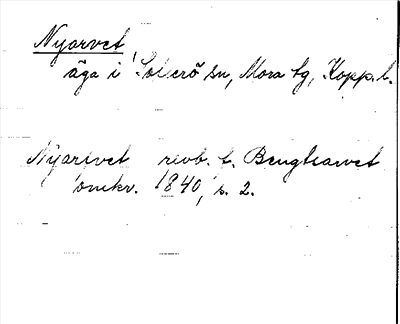 Nyarvet,
äga i Sollerö sn, Mora tg, Kopp. l.
Nyarfvet revb. t. Bengtsarvet
omkr. 1840, s. 2.